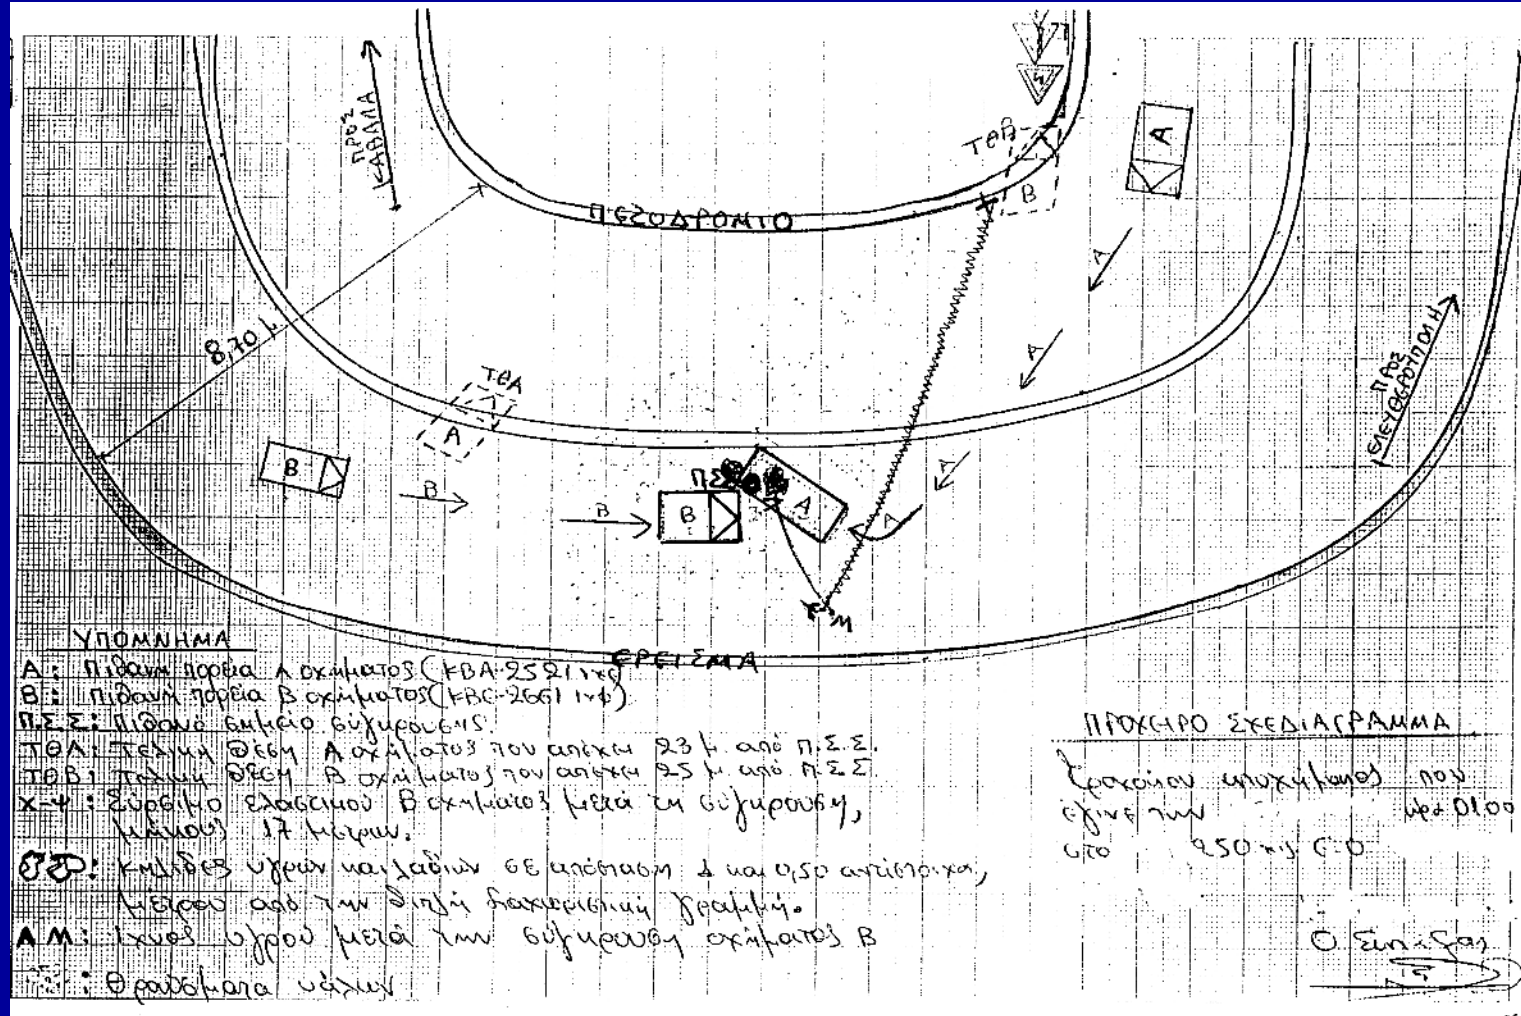 ΠΡΟΣ
ΚΑΒΑΛΑ
ΤΘΒ
Β
Α
ΠΕΖΟΔΡΟΜΙΟ
Α
8,70 μ
Α
ΠΡΟΣ
ΕΛΕΥΘΕΡΟΥΠΟΛΗ
ΤΘΑ
Α
Β
Β
Β
ΠΣΣ
Β
Α
Α
Α
Μ
ΕΡΕΙΣΜΑ
ΥΠΟΜΝΗΜΑ
Α: Πιθανή πορεία Α οχήματος (ΚΒΑ-2521 ιχφ)
Β: Πιθανή πορεία Β οχήματος (ΚΒΕ-2661 ιχφ)
Π.Σ.Σ: Πιθανό σημείο σύγκρουσης.
ΤΘΑ: Τελική θέση Α οχήματος που απέχει 23 μ. από Π.Σ.Σ.
ΤΘΒ: Τελική θέση Β οχήματος που απέχει 25 μ. από Π.Σ.Σ
Χ-Ψ: Σύρσιμο ελαστικού Β οχήματος μετά τη σύγκρουση,
μήκους 17 μέτρων.
: Κηλίδες υγρών και λαδιών σε απόσταση 1 και 0,50 αντίστοιχα,
μέτρου από την διπλή διαχωριστική γραμμή.
ΑΜ: Ίχνος υγρού μετά την σύγκρουση οχήματος Β
: Θραύσματα υάλων
ΠΡΟΧΕΙΡΟ ΣΧΕΔΙΑΓΡΑΜΜΑ
τροχαίου ατυχήματος που
έγινε την ώρα 0100
στο 250 χλς Ε.Ο